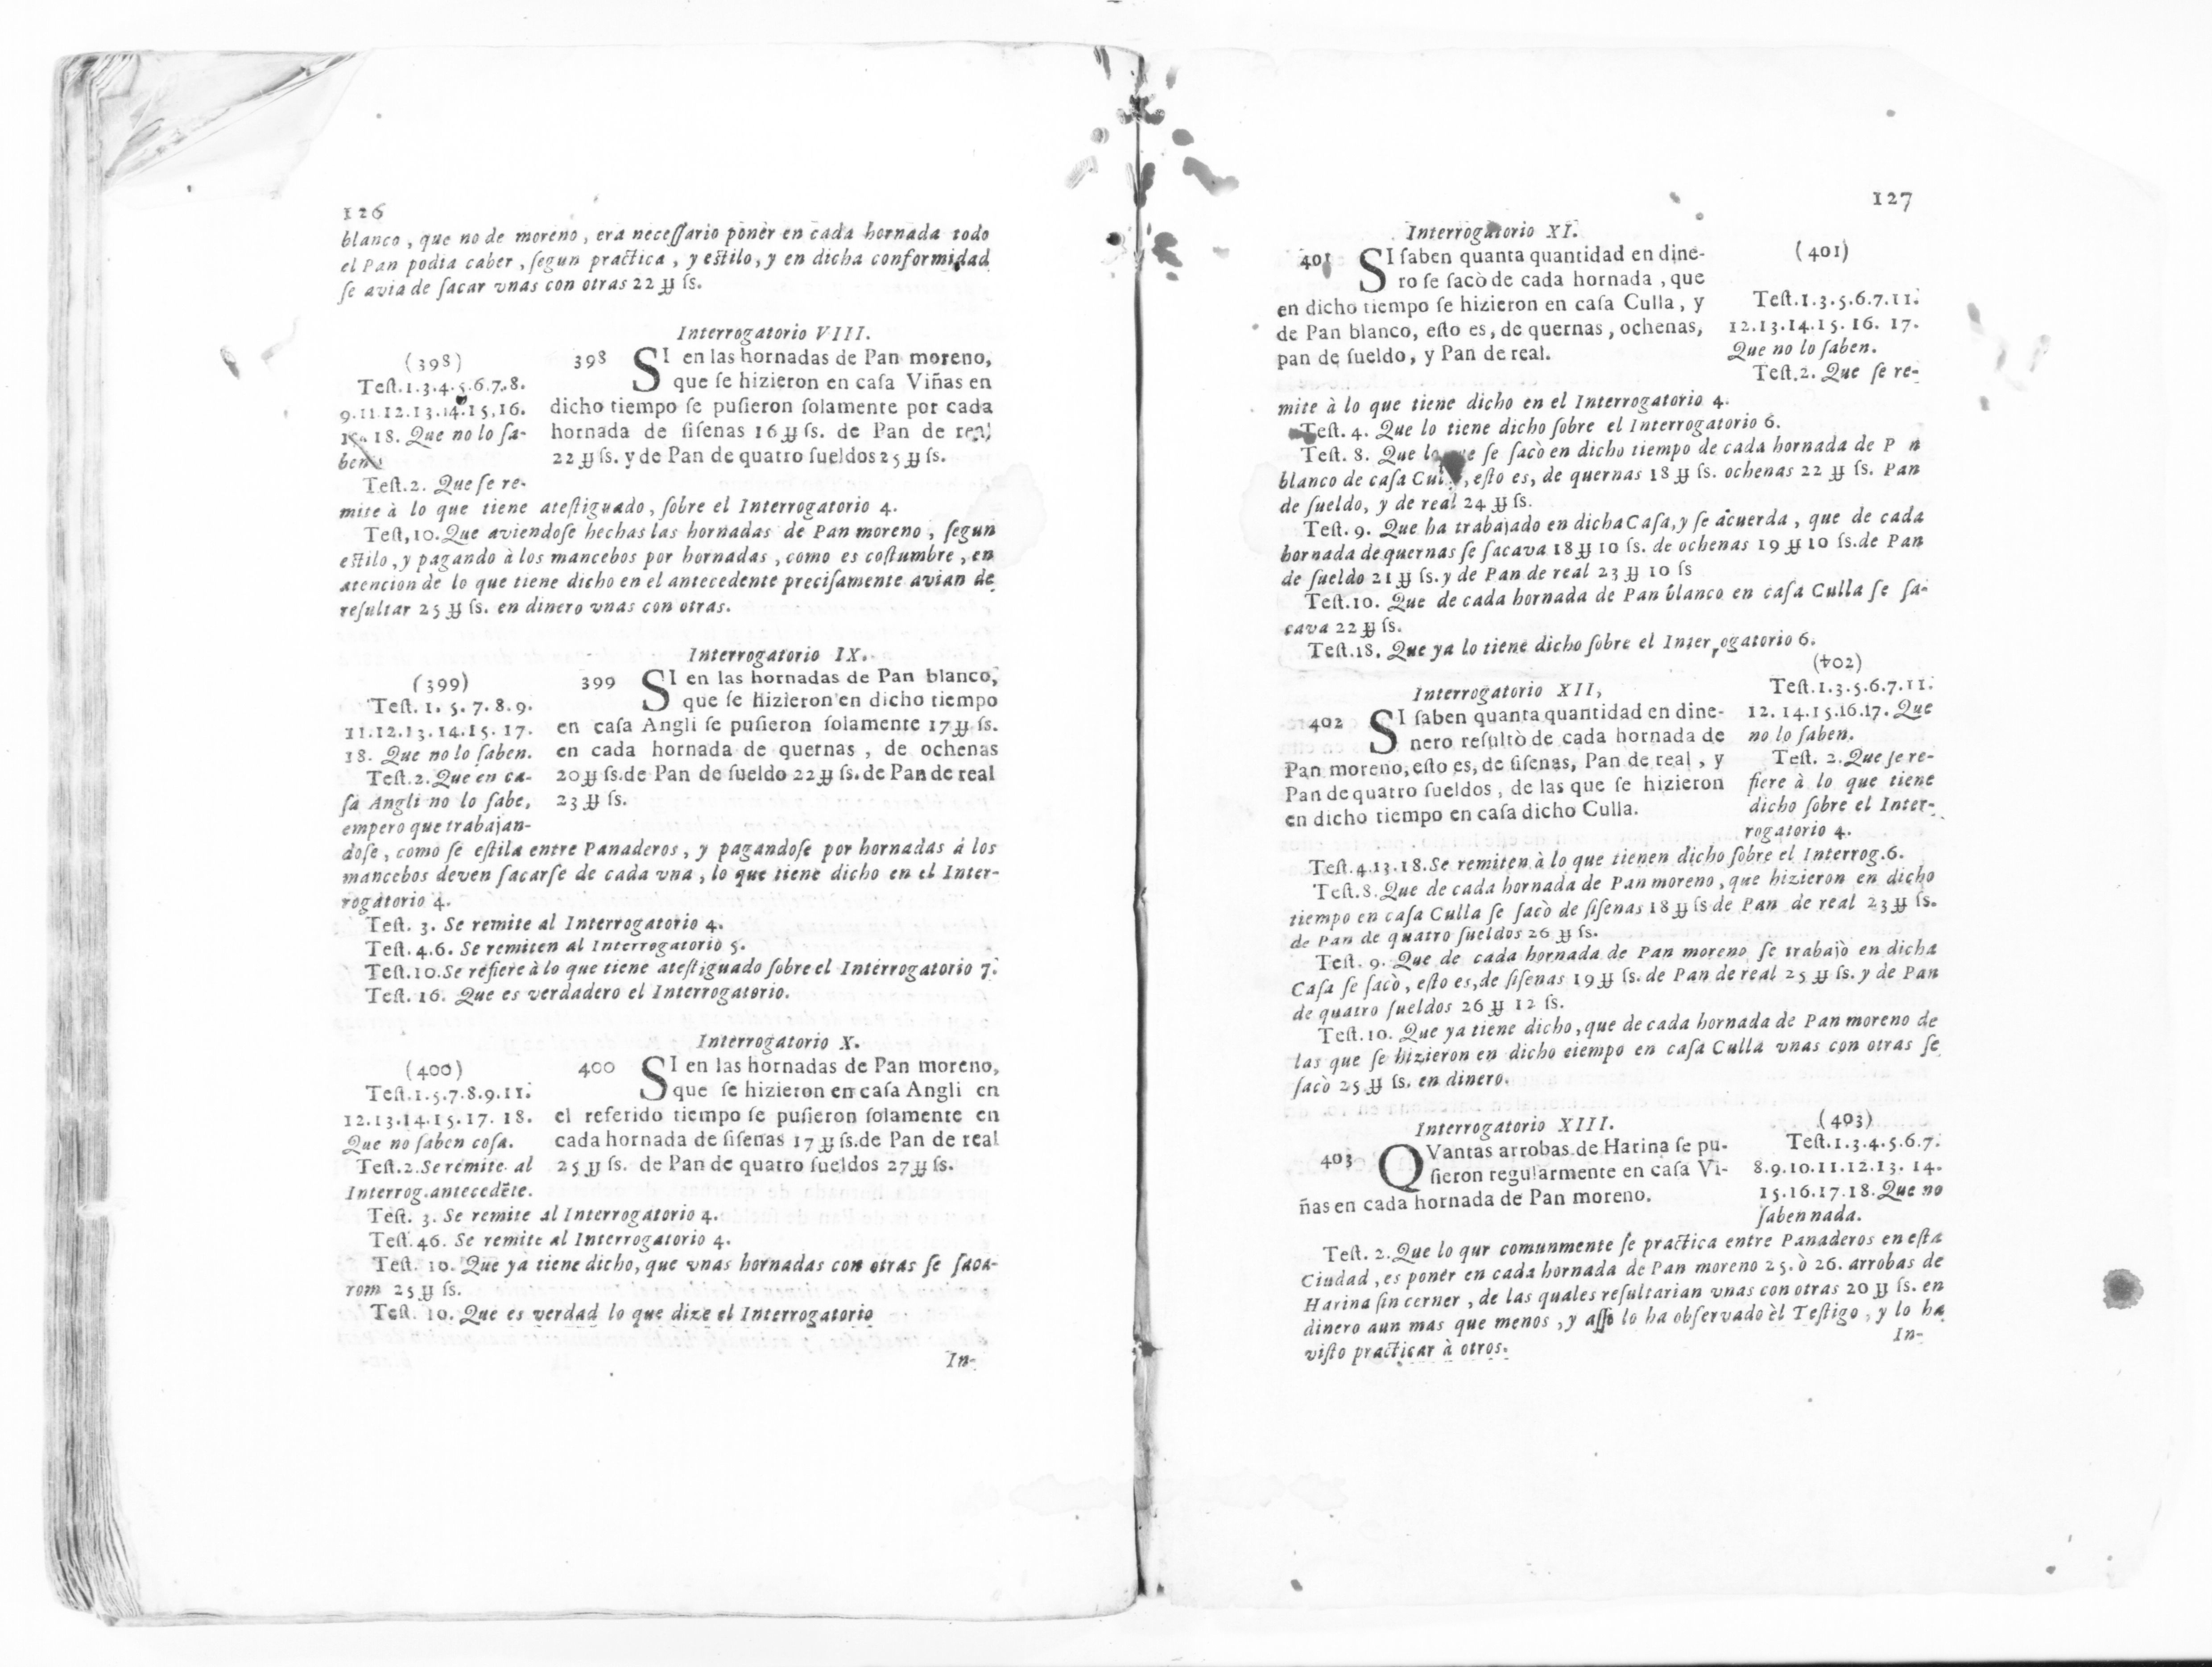 126
blanco, que no de moreno, era neceſſario ponèr en cada hornada todo
el Pan podia caber, ſegun practica, y estilo, y en dicha conformidad
ſe avia de ſacar vnas con otras 22 ꝇ ſs.
Interrogatorio VIII.
(398)
Teſt.1.3.4.5.6.7.8.
9.11.12.13.14.15.16.
18. Que no lo ſa-
ben.
Teſt.2. Que ſe re-
398 SI en las hornadas de Pan moreno,
que ſe hizieron en caſa Viñas en
dicho tiempo ſe puſieron ſolamente por cada
hornada de ſiſenas 16 ꝇ ſs. de Pan de real
22 ꝇ ſs. y de Pan de quatro ſueldos 25 ꝇ ſs.
mite à lo que tiene ateſtiguado, ſobre el Interrogatorio 4.
Teſt,10. Que aviendoſe hechas las hornadas de Pan moreno, ſegun
estilo, y pagando à los mancebos por hornadas, como es coſtumbre, en
atencion de lo que tiene dicho en el antecedente preciſamente avian de
reſultar 25 ꝇ ſs. en dinero vnas con otras.
Interrogatorio IX.
(399)
Teſt. 1. 5. 7. 8. 9.
11.12.13.14.15. 17.
18. Que no lo ſaben.
Teſt.2. Que en ca-
ſa Angli no lo ſabe,
empero que trabajan-
399 SI en las hornadas de Pan blanco,
que ſe hizieron en dicho tiempo
en caſa Angli ſe puſieron ſolamente 17 ꝇ ſs.
en cada hornada de quernas, de ochenas
20 ꝇ ſs.de Pan de ſueldo 22 ꝇ ſs.de Pan de real
23 ꝇ ſs.
doſe, como ſe eſtila entre Panaderos, y pagandoſe por hornadas á los
mancebos deven ſacarſe de cada vna, lo que tiene dicho en el Inter-
rogatorio 4.
Teſt. 3. Se remite al Interrogatorio 4.
Teſt.4.6. Se remiten al Interrogatorio 5.
Teſt.10.Se refiere à lo que tiene ateſtiguado ſobre el Interrogatorio 7.
Teſt. 16. Que es verdadero el Interrogatorio.
Interrogatorio X.
(400)
Teſt.1.5.7.8.9.11.
12.13.14.15.17. 18.
Que no ſaben coſa.
Teſt.2.Se remite al
Interrog.antecedēte.
400 SI en las hornadas de Pan moreno,
que ſe hizieron en caſa Angli en
el referido tiempo ſe puſieron ſolamente en
cada hornada de ſiſenas 17 ꝇ ſs.de Pan de real
25 ꝇ ſs. de Pan de quatro ſueldos 27 ꝇ ſs.
Teſt. 3. Se remite al Interrogatorio 4.
Teſt.46. Se remite al Interrogatorio 4.
Teſt. 10. Que yà tiene dicho, que vnas hornadas con otras ſe ſaca-
rom 25 ꝇ ſs.
Teſt. 10. Que es verdad lo que dize el Interrogatorio
In-
127
Interrogatorio XI.
401 SI ſaben quanta quantidad en dine-
ro ſe ſacò de cada hornada, que
en dicho tiempo ſe hizieron en caſa Culla, y
de Pan blanco, eſto es, de quernas, ochenas,
pan de ſueldo, y Pan de real.
(401)
Teſt.1.3.5.6.7.11.
12.13.14.15.16. 17.
Que no lo ſaben.
Teſt.2. Que ſe re-
mite à lo que tiene dicho en el Interrogatorio 4.
Teſt. 4. Que lo tiene dicho ſobre el Interrogatorio 6.
Teſt. 8. Que ſe ſacò en dicho tiempo de cada hornada de P n
blanco de caſa , eſto es, de quernas 18 ꝇ ſs. ochenas 22 ꝇ ſs. Pan
de ſueldo, y de real 24 ꝇ ſs.
Teſt. 9. Que ha trabajado en dicha Caſa, y ſe acuerda, que de cada
hornada de quernas ſe ſacava 18 ꝇ 10 ſs. de ochenas 19 ꝇ 10 ſs.de Pan
de ſueldo 21 ꝇ ſs. y de Pan de real 23 ꝇ 10 ſs
Teſt.10. Que de cada hornada de Pan blanco en caſa Culla ſe ſa-
cava 22 ꝇ ſs.
Teſt.18. Que ya lo tiene dicho ſobre el Interrogatorio 6.
Interrogatorio XII,
402 SI ſaben quanta quantidad en dine-
nero reſultò de cada hornada de
Pan moreno, eſto es, de ſiſenas, Pan de real, y
Pan de quatro ſueldos, de las que ſe hizieron
en dicho tiempo en caſa dicho Culla.
(402)
Teſt.1.3.5.6.7.11.
12. 14.15.16.17. Que
no lo ſaben.
Teſt. 2. Que ſe re-
fiere à lo que tiene
dicho ſobre el Inter-
rogatorio 4.
Teſt.4.13.18.Se remiten à lo que tienen dicho ſobre el Interrog.6.
Teſt.8. Que de cada hornada de Pan moreno, que hizieron en dicho
tiempo en caſa Culla ſe ſacò de ſiſenas 18 ꝇ ſs de Pan de real 23 ꝇ ſs.
de Pan de quatro ſueldos 26 ꝇ ſs.
Teſt. 9. Que de cada hornada de Pan moreno ſe trabajò en dicha
Caſa ſe ſacò, eſto es, de ſiſenas 19 ꝇ ſs. de Pan de real 25 ꝇ ſs. y de Pan
de quatro ſueldos 26 ꝇ 12 ſs.
Teſt.10. Que ya tiene dicho, que de cada hornada de Pan moreno de
las que ſe hizieron en dicho eiempo en caſa Culla vnas con otras ſe
ſacò 25 ꝇ ſs. en dinero.
Interrogatorio XIII.
403 QVantas arrobas de Harina ſe pu-
ſieron regularmente en caſa Vi-
ñas en cada hornada de Pan moreno.
(403)
Teſt.1.3.4.5.6.7.
8.9.10.11.12.13. 14.
15.16.17.18. Que no
ſaben nada.
Teſt. 2. Que lo qur comunmente ſe practica entre Panaderos en eſta
Ciudad, es ponèr en cada hornada de Pan moreno 25. ò 26. arrobas de
Harina ſin cerner, de las quales reſultarian vnas con otras 20 ꝇ ſs. en
dinero aun mas que menos, y aſſo lo ha obſervado èl Teſtigo, y lo ha
viſto practicar à otros.
In-